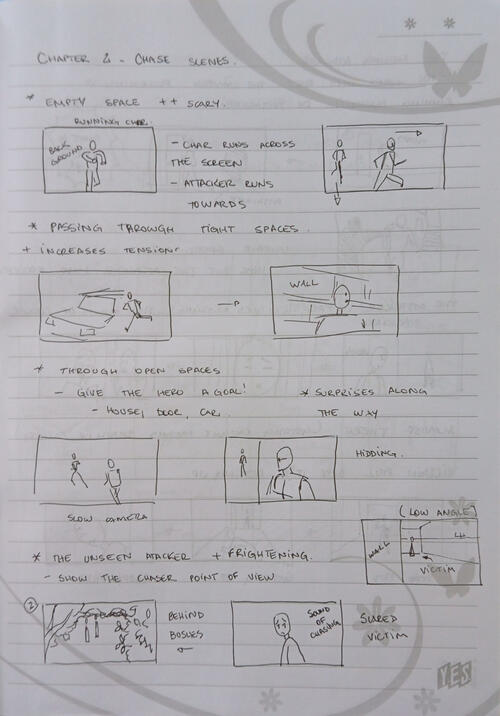 CHAPTER 4 - CHASE SCENES.
* EMPTY SPACE ++ SCARY.
RUNNING CHAR.
BACK
GROUND
- CHAR RUNS ACROSS
THE SCREEN
- ATTACKER RUNS
TOWARDS
* PASSING THROUGH TIGHT SPACES.
+ INCREASES TENSION
WALL
* THROUGH OPEN SPACES
- GIVE THE HERO A GOAL!
- HOUSE, DOOR, CAR.
* SURPRISES ALONG
THE WAY
HIDDING.
SLOW CAMERA
(LOW ANGLE)
WALL
VICTIM
* THE UNSEEN ATACKER + FRIGHTENING.
- SHOW THE CHASER POINT OF VIEW
2
BEHIND
BOSUES
SOUND
OF
CHASING
SCARED
VICTIM
YES